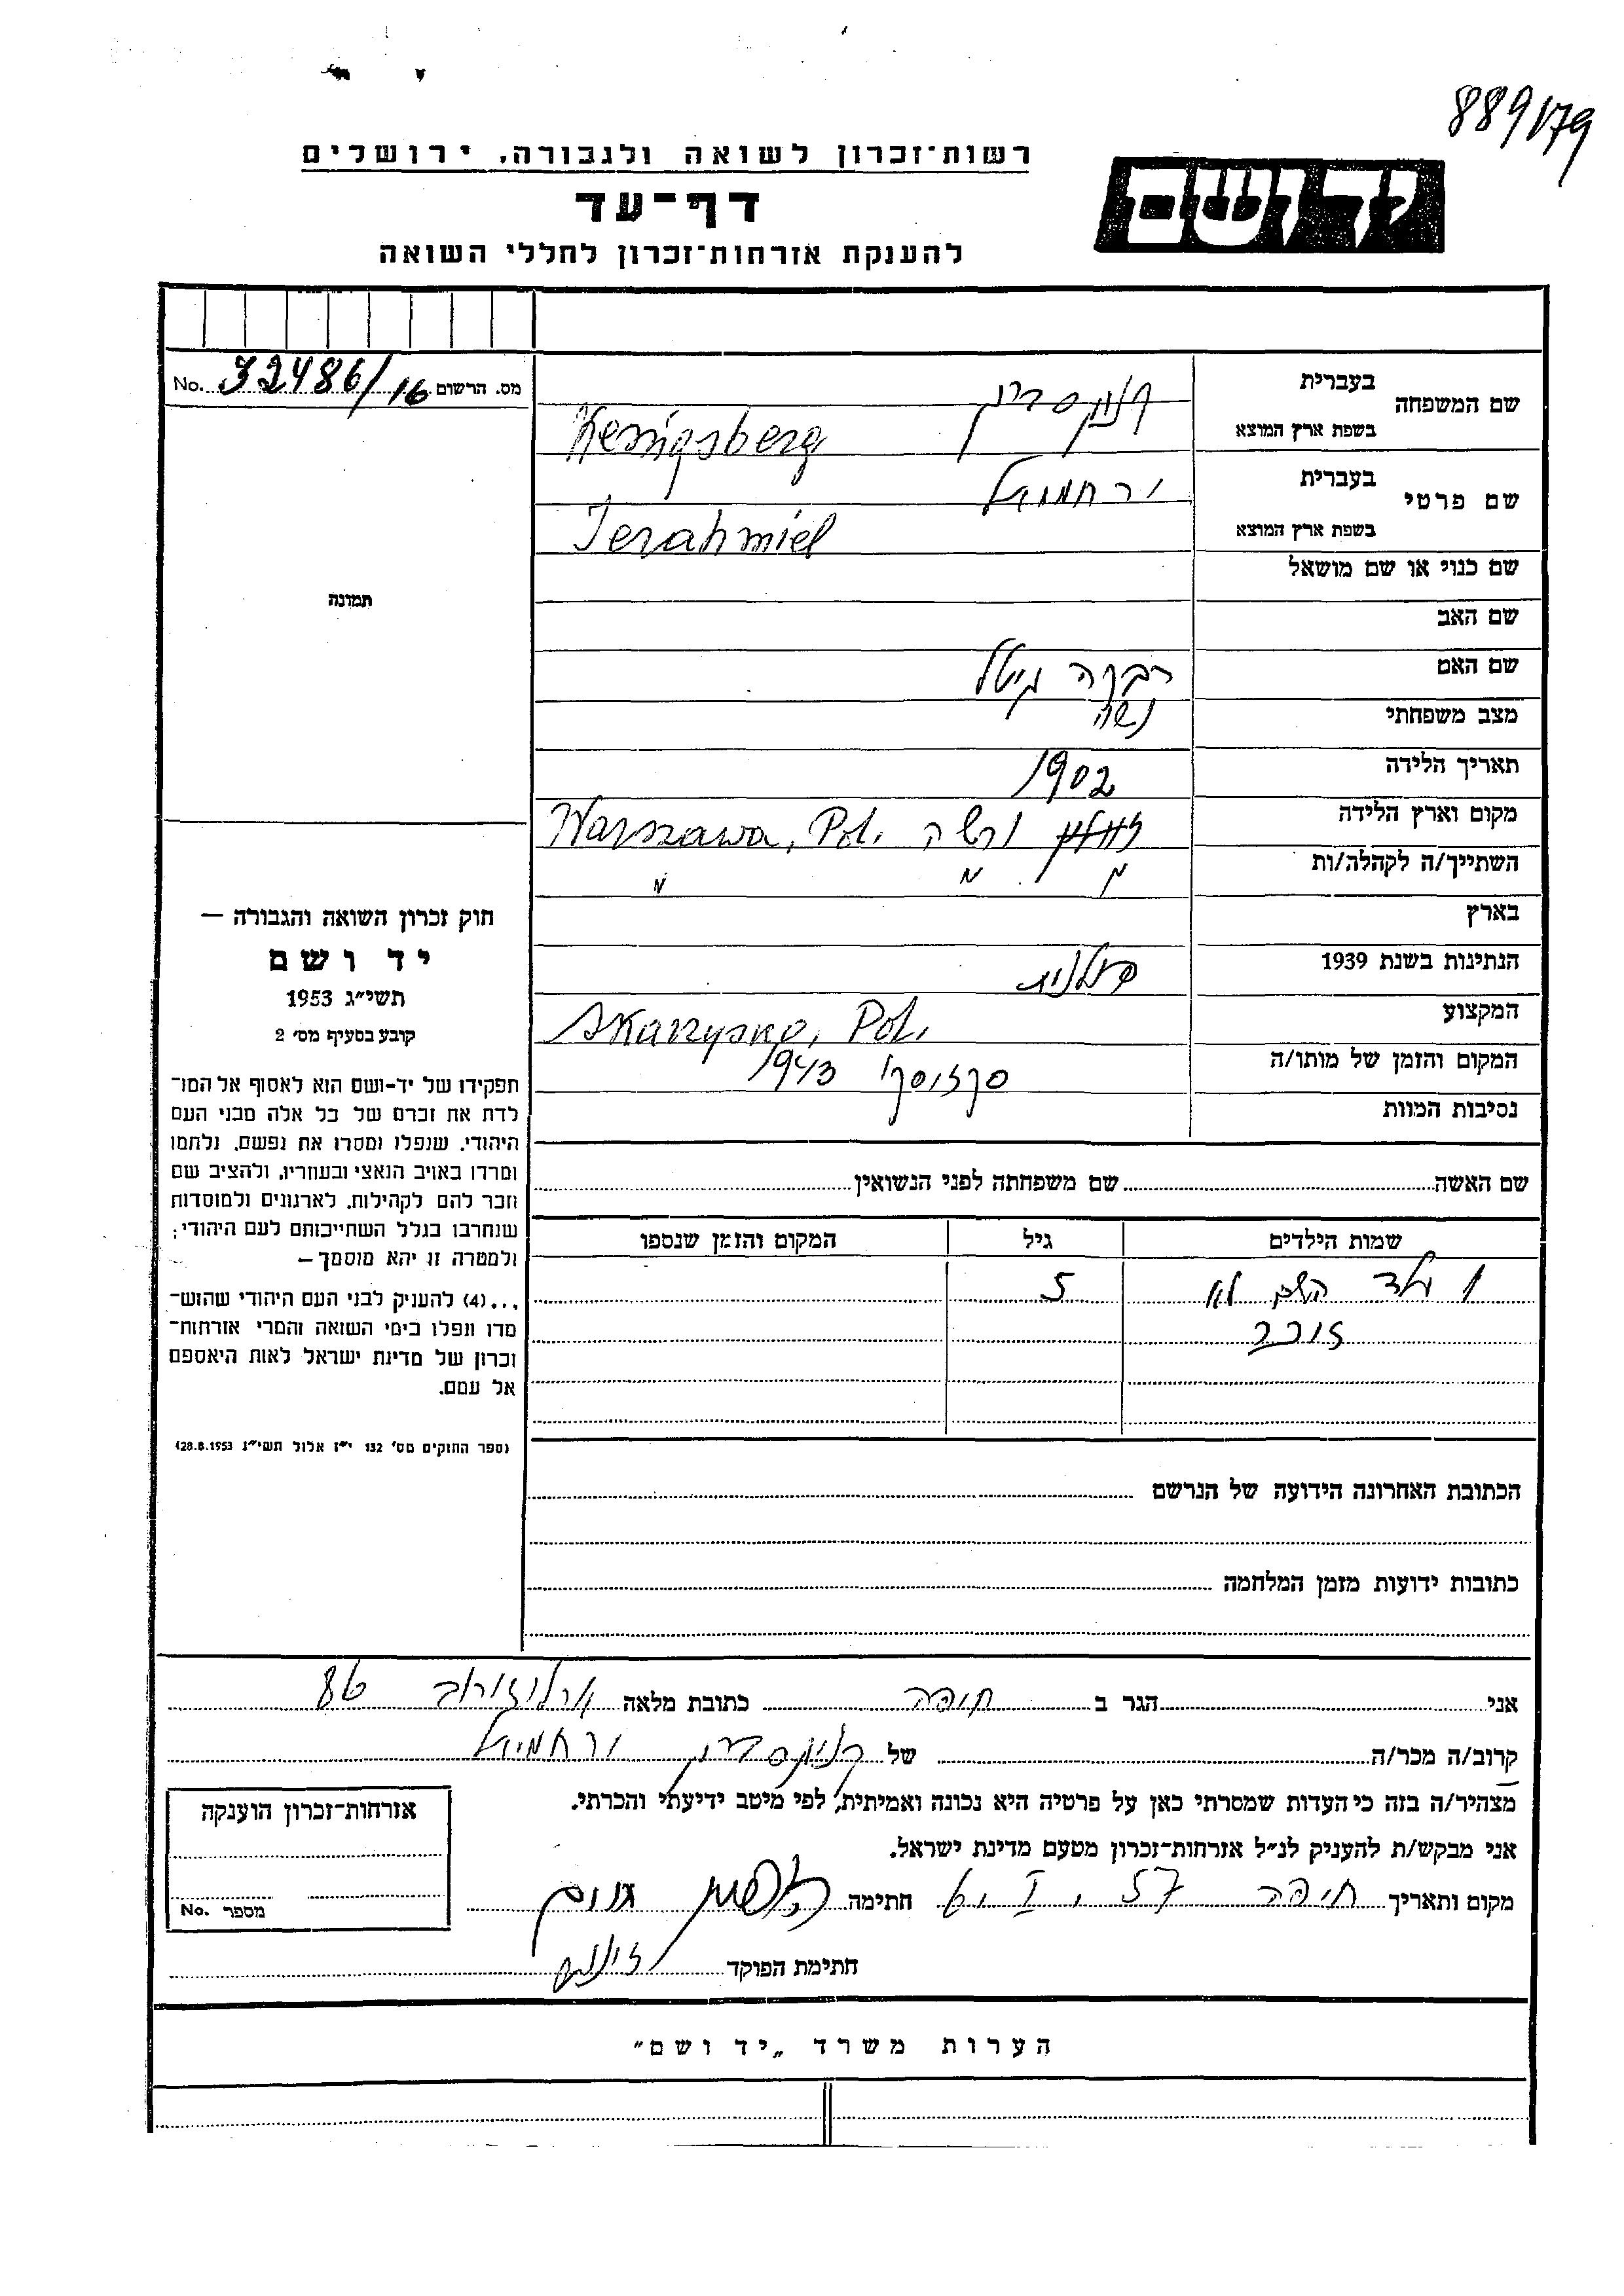 889179
רשות־זכרון לשואה ולגבורה, ירושלים
יד ושם
דף־עד
להענקת אזרחות־זכרון לחללי השואה
מס. הרשום 32486/16 No.
שם המשפחה בעברית
בשפת ארץ המוצא Kenigsberg
שם פרטי בעברית ירחמיאל
בשפת ארץ המוצא Jerahmiel
שם כנוי או שם מושאל
שם האב
שם האם רבקה גיטל
מצב משפחתי נשוי
תאריך הלידה 1902
מקום וארץ הלידה ורשה Warszawa, Pol.
השתייך/ה לקהלה/ות " " "
בארץ
הנתינות בשנת 1939 פולנית
המקצוע Skarzysko, Pol.
המקום והזמן של מותו/ה 1943
נסיבות המוות
תמונה
חוק זכרון השואה והגבורה —
יד ושם
תשי״ג 1953
קובע בסעיף מס׳ 2
תפקידו של יד-ושם הוא לאסוף אל המו־
לדת את זכרם של כל אלה מבני העם
היהודי, שנפלו ומסרו את נפשם, נלחמו
ומרדו באויב הנאצי ובעוזריו, ולהציב שם
וזכר להם לקהילות, לארגונים ולמוסדות
שנחרבו בגלל השתייכותם לעם היהודי;
ולמטרה זו יהא מוסמך —
...(4) להעניק לבני העם היהודי שהוש־
מדו ונפלו בימי השואה והמרי אזרחות־
זכרון של מדינת ישראל לאות היאספם
אל עמם.
(ספר החוקים מס׳ 132 י״ז אלול תשי״ג 28.8.1953)
שם האשה שם משפחתה לפני הנשואין
שמות הילדים גיל המקום והזמן שנספו
1 ילד השם לא 5
זוכר
הכתובת האחרונה הידועה של הנרשם
כתובות ידועות מזמן המלחמה
אני הגר ב חיפה כתובת מלאה ארלוזורוב 86
קרוב/ה מכר/ה של קניגסברג ירחמיאל
מצהיר/ה בזה כי העדות שמסרתי כאן על פרטיה היא נכונה ואמיתית, לפי מיטב ידיעתי והכרתי.
אני מבקש/ת להעניק לנ״ל אזרחות־זכרון מטעם מדינת ישראל.
מקום ותאריך חיפה 57 חתימה
חתימת הפוקד
אזרחות־זכרון הוענקה
מספר No.
הערות משרד „יד ושם״